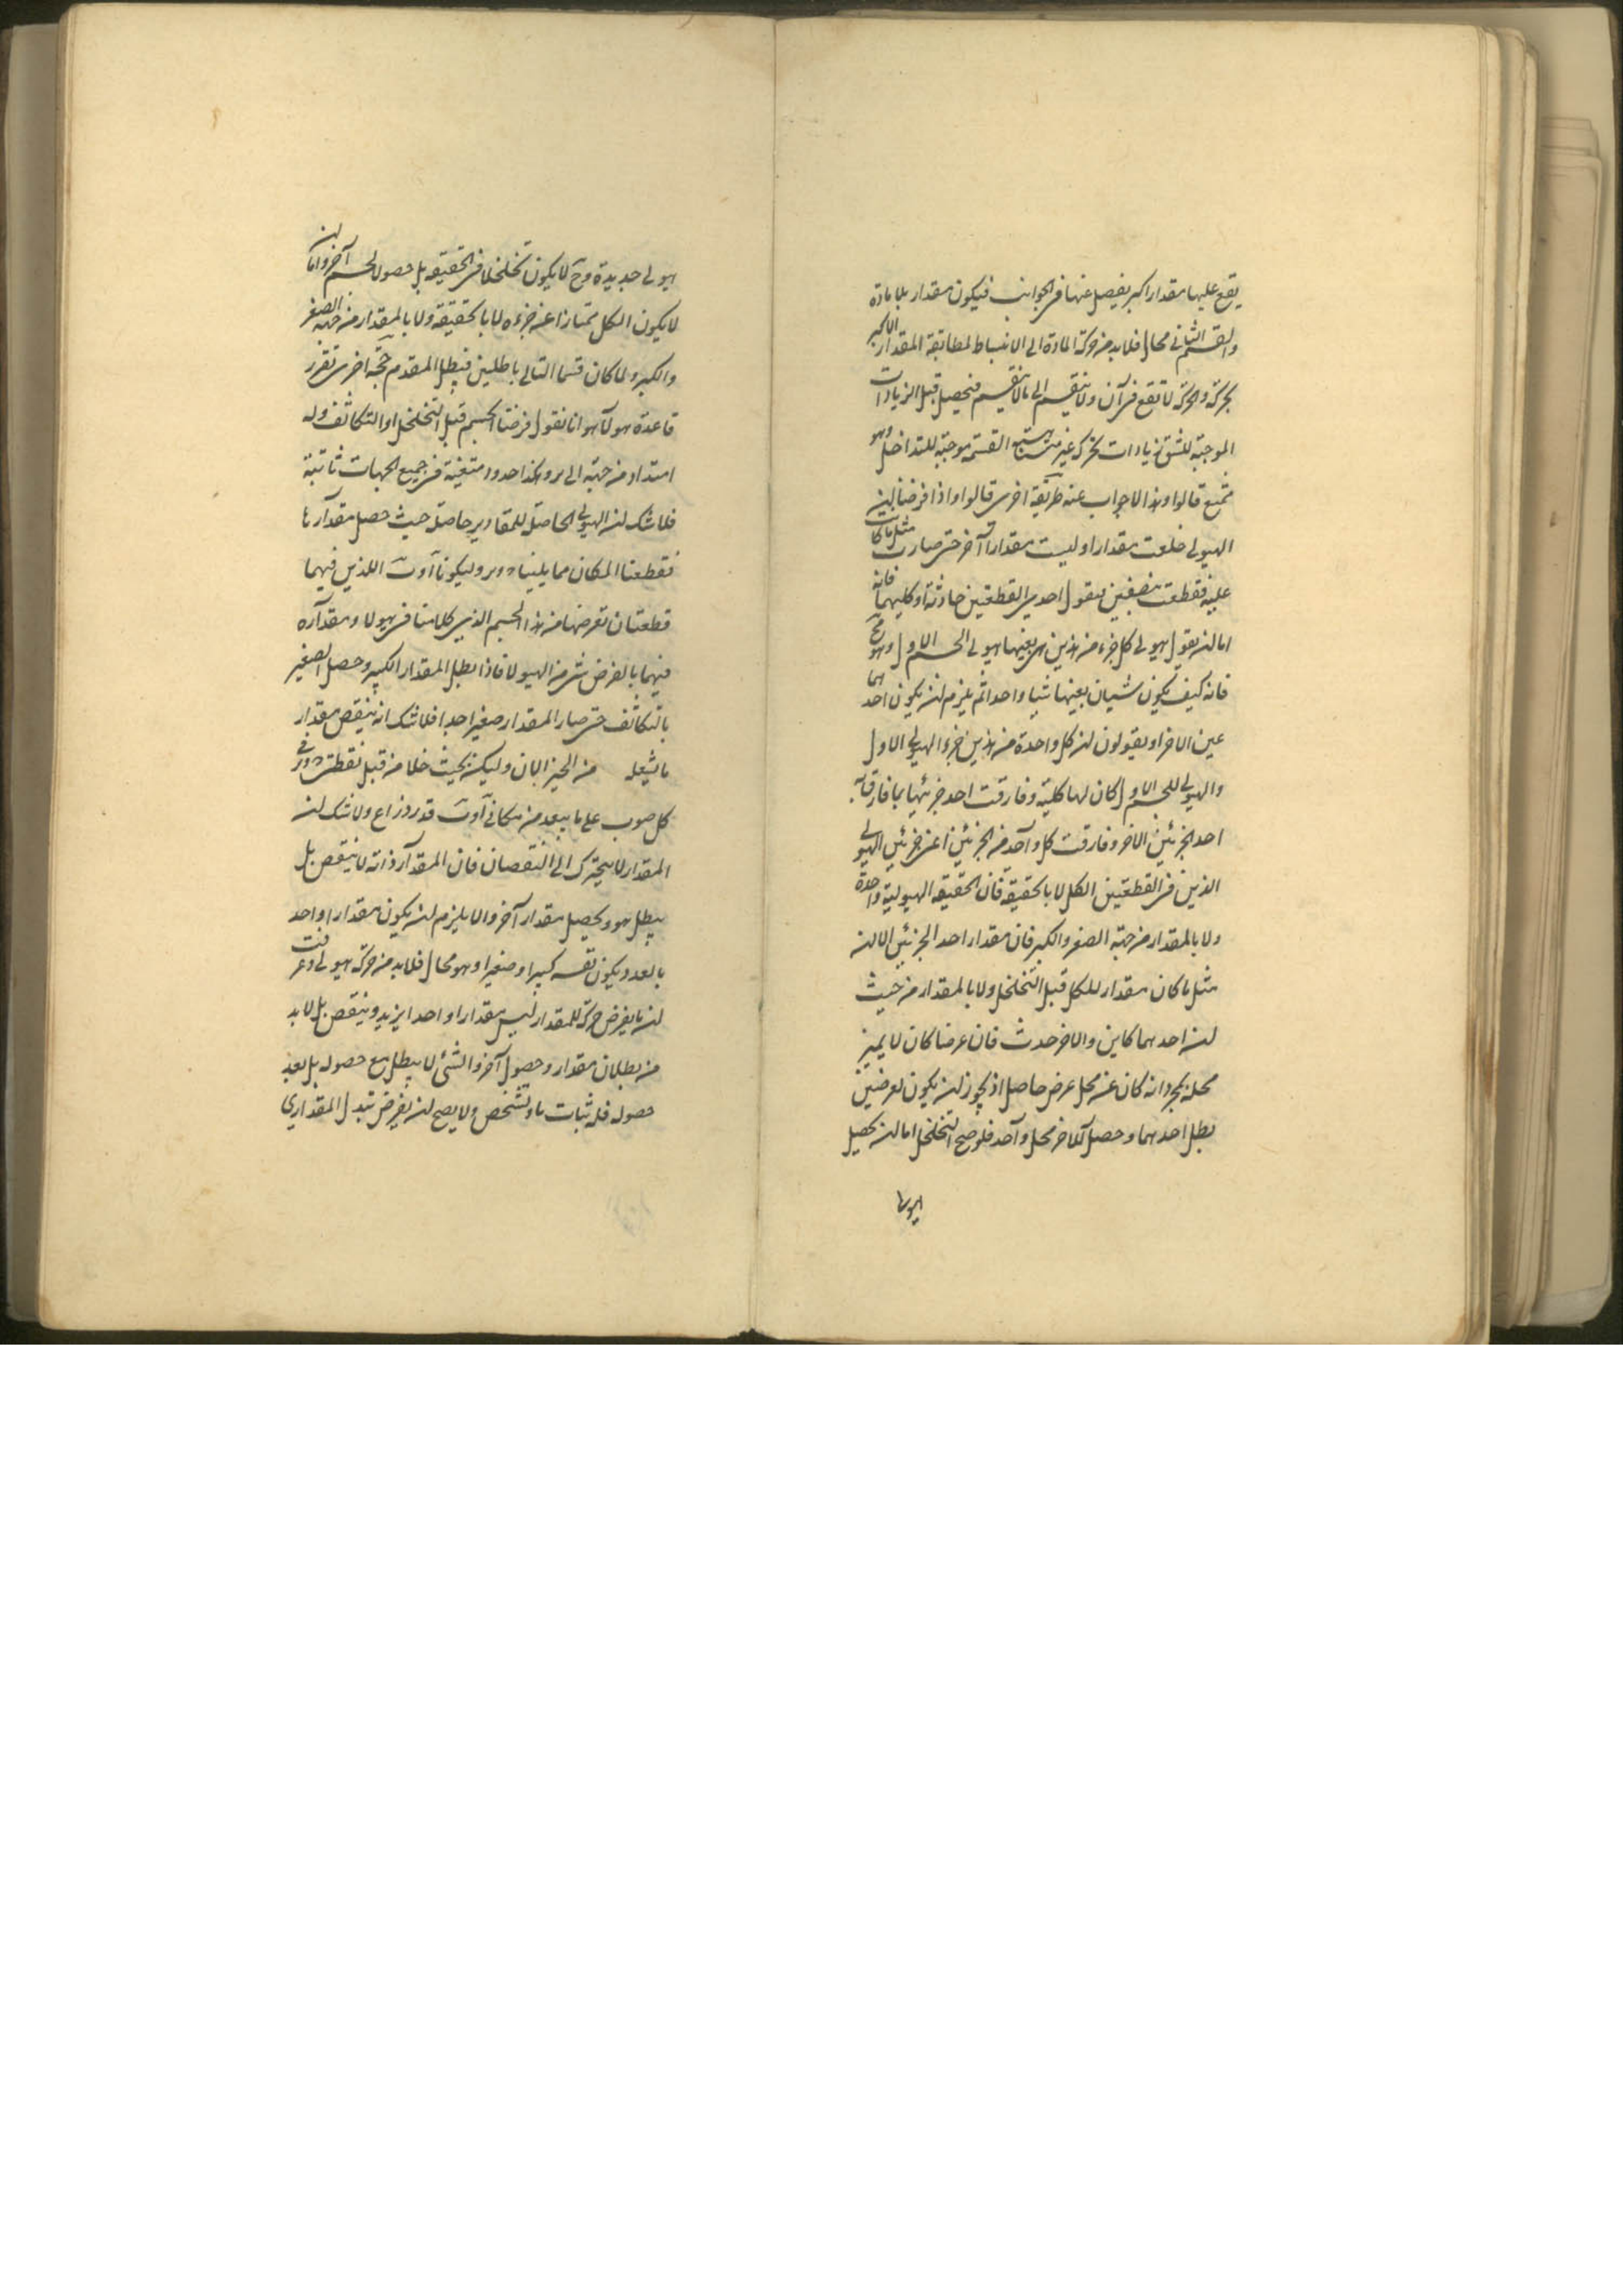 يقع عليها مقدار اكبر يفصل عنها فى الجوانب فيكون مقدار بلا مادة
والقسم الثانى محال فلا بد من حركة المادة الى الانبساط لمطابقة المقدار الاكبر
بحركة والحركة لا تقع فى آن ولا ينقسم الى ما لا ينقسم فيحصل قبل الزيادات
الموجبة للشق زيادات بحركة غير القسمة موجبة للتداخل وهو
ممتنع قالوا وهذا لا جواب عنه طريقة اخرى قالوا واذا فرضنا ان
الهيولى خلعت مقدارا ولبست مقدارا آخر حتى صارت مثل ما كانت
عليه فقطعت بنصفين فنقول احدى القطعتين حادثة او كليهما فانه
اما ان يقول هيولى كل جزء من هذين هى بعينها هيولى الجسم الاول وهو مح
فانه كيف يكون شيئان بعينها شيئا واحدا ثم يلزم ان يكون احدهما
عين الاخر او يقولون ان كل واحدة من هذين جزء الهيولى الاول
والهيولى للجسم الاول كان لها كلية وفارقت احد جزئيها بما فارق به
احد الجزئين الاخر وفارقت كل واحد من الجزئين اعنى جزئين الهيولى
الذين فى القطعتين الكل لا بالحقيقة فان الحقيقة الهيولية واحدة
ولا بالمقدار من جهة الصغر والكبر فان مقدار احد الجزئين الان
مثل ما كان مقدار للكل قبل التخلخل ولا بالمقدار من حيث
ان احدهما كاين والاخر حدث فان عرضا كان لا يميز
محله بمجرد انه كان عن محل عرض حاصل اذ يجوز ان يكون لعرضين
بطل احدهما وحصل الاخر محل واحد فلو صح التخلخل اما ان يحصل
هيولى
هيولى جديدة وح لا يكون تخلخلا فى الحقيقة بل حصول الجسم آخر واما ان
لا يكون الكل ممتازا عن جزءه لا بالحقيقة ولا بالمقدار من جهة الصغر
والكبر ولما كان قسما التالى باطلين فبطل المقدم حجة اخرى تقرر
قاعدة هولآء هو انا نقول فرضنا الجسم قبل التخلخل او التكاثف وله
امتداد من جهة الى وهكذا حدود متعينة فى جميع الجهات ثابتة
فلا شك ان الهيولى الحاصل للمقادير حاصلة حيث حصل مقدار ما
فقطعنا المكان مما يلينا وليكونا اللذين فيهما
قطعتان نفرضها من هذا الجسم الذى كلامنا فى هيولا ومقداره
فيهما بالفرض شئ من الهيولا فاذا بطل المقدار الكبير وحصل الصغير
بالتكاثف حتى صار المقدار صغيرا جدا فلا شك انه ينقص مقدار
ما يشغله من الحيز الان وليكن بحيث خلا من قبل نقطتى
كل صوب على ما يبعد من مكانى قدر ذراع ولا شك ان
المقدار لا يتحرك الى النقصان فان المقدار ذاته لا ينتقص بل
يبطل هو ويحصل مقدار آخر والا يلزم ان يكون مقدارا واحد
بالعدد يكون نفسه كبيرا وصغيرا وهو محال فلا بد من حركة هيولى وعرفت
ان ما يفرض حركة للمقدار ليس مقدارا واحدا يزيد وينتقص بل لا بد
من بطلان مقدار وحصول آخر والشئ لا يبطل مع حصوله بل بعد
حصوله فله ثبات ما وتشخص ولا يصح ان يفرض تبدل المقدارى